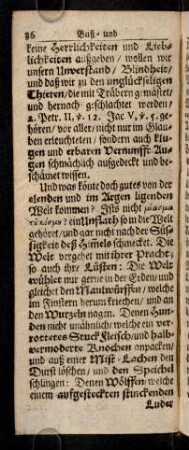 86 Buß- und
keine Herrlichkeiten und Lieb-
lichkeiten außgeben / wollen wir
unsern Unverstand / Blindheit /
und daß wir zu den unglückseligen
Thieren / die mit Träbern gemästet /
und hernach geschlachtet werden /
2. Petr. II, v. 12. Jac V, v. 5. ge-
hören / vor aller / nicht nur im Glau-
ben erleuchteten / sondern auch klu-
gen und erbaren Vernunfft Au-
gen schmählich aufgedeckt und be-
schämet wissen.
Und was könte doch gutes von der
elenden und im Argen ligenden
Welt kommen? Ists nicht
ein Unflath so in die Welt
gehöret / und gar nicht nach der Süs-
sigkeit deß Himels schmecket. Die
Welt vergehet mit ihrer Pracht;
so auch ihre Lüsten: Die Welt
wühlet mir gerne in der Erden / und
gleichet den Maulwürffen / welche
im Finstern herum kriechen / und an
den Wurzeln nagen. Denen Hun-
den nicht unähnlich / welche ein ver-
rotteres Stuck Fleisch / und halb-
vermoderte Knochen anpacken /
und auß einer Mist-Lachen den
Durst löschen / und den Speichel
schlingen: Denen Wölffen / welche
einem aufgesteckten stinckenden
Luder